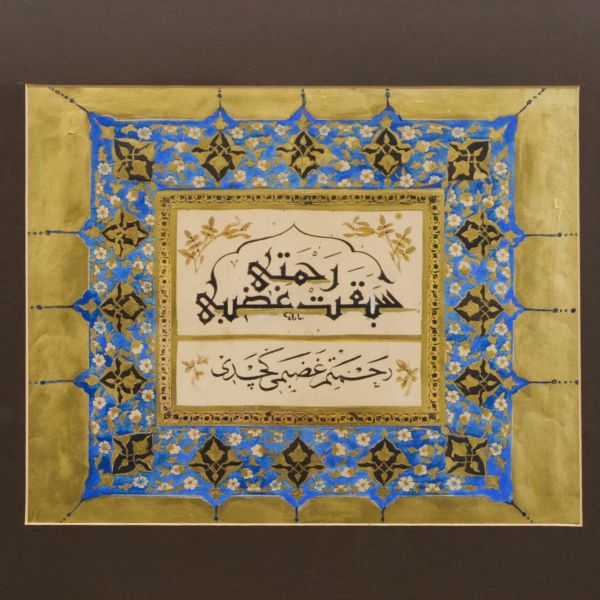 رحمتى
سبقت غضبى
رحمتم غضبمى كچدى